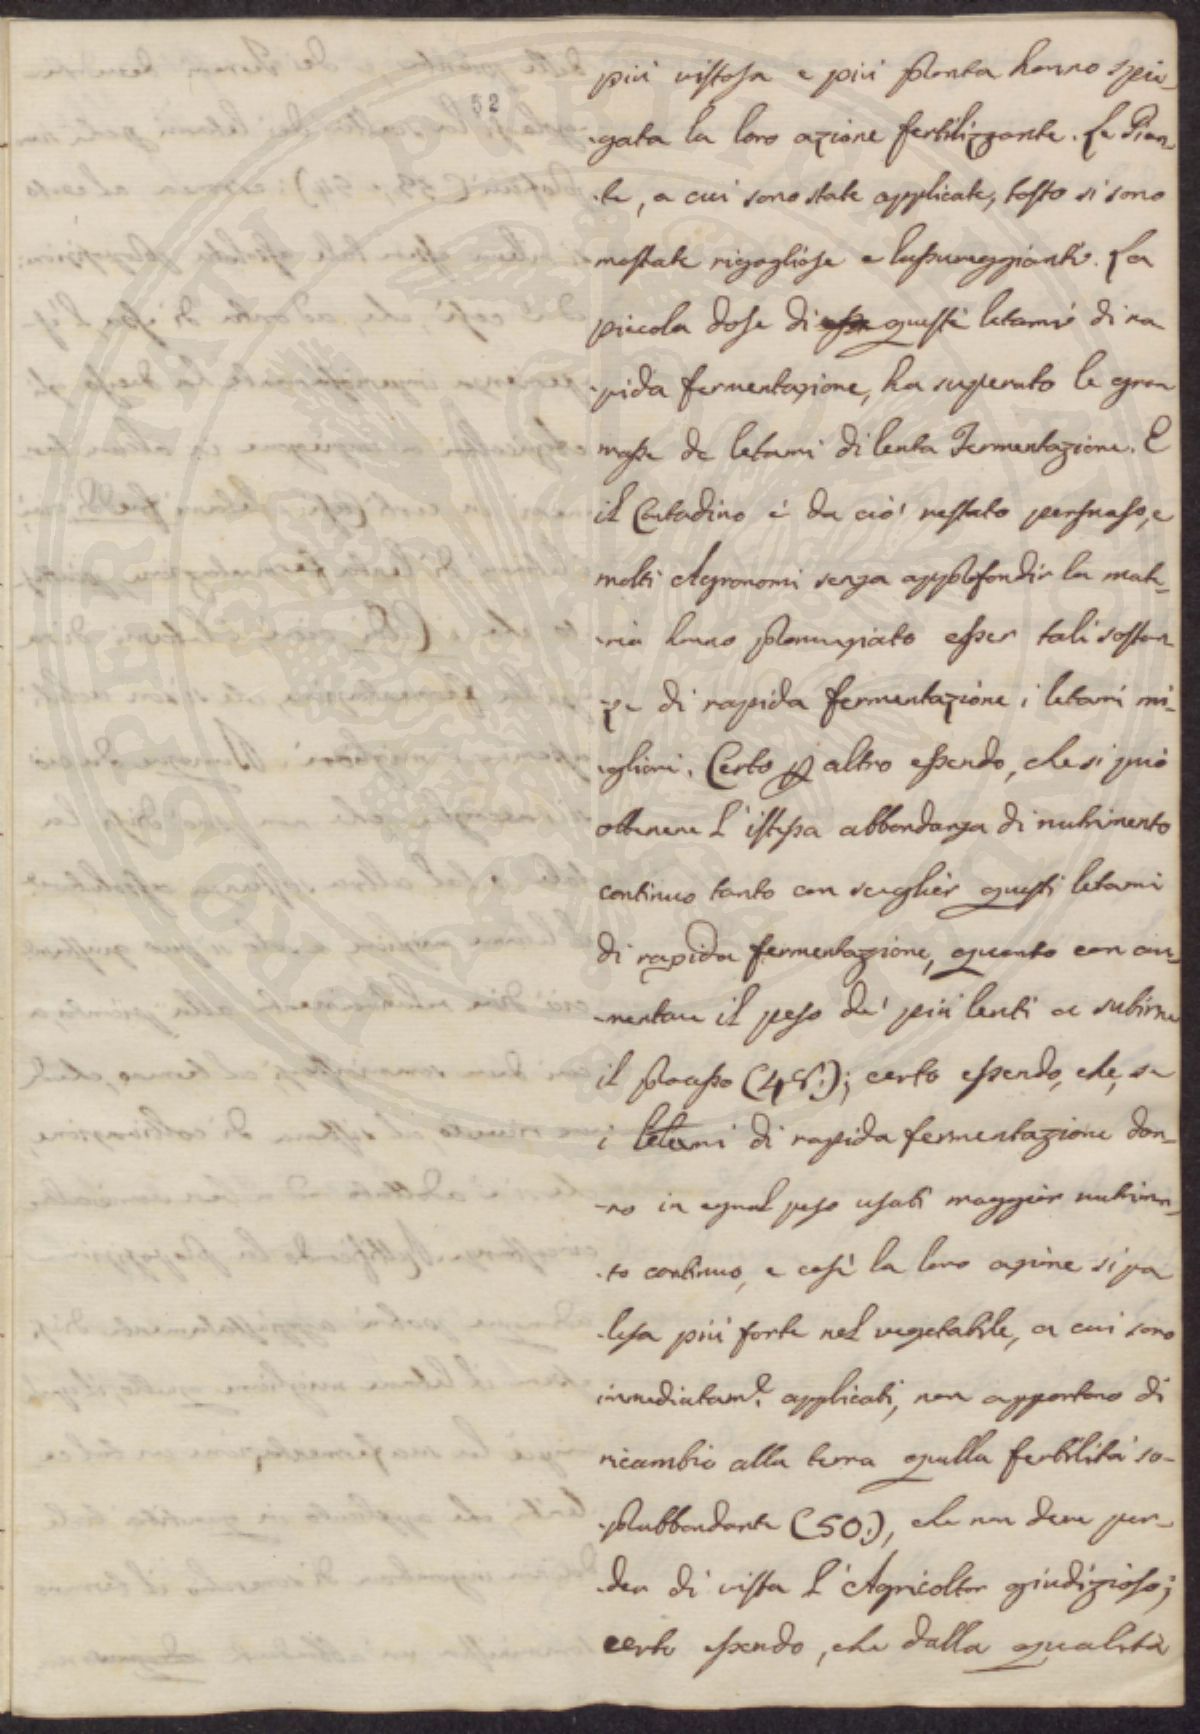 52
più vistosa e più pronta hanno spie-
-gata la loro azione fertilizzante. Le Pian-
-te, a cui sono state applicate, tosto si sono
mostrate rigogliose e lussureggianti. La
piccola dose di esse questi letami di ra
-pida fermentazione, ha superato le gran
masse de letami di lenta Fermentazione. E
il Contadino è da ciò restato persuaso, e
molti Agronomi senza approfondir la mate-
-ria hanno pronunziato esser tali sostan-
-ze di rapida fermentazione i letami mi-
-gliori. Certo per altro essendo, che si può
ottenere l'istessa abbondanza di nutrimento
continuo tanto con sceglier questi letami
di rapida fermentazione, quanto con au-
-mentare il peso de' più lenti a subirne
il processo (48.); certo essendo, che, se
i letami di rapida fermentazione don-
-no in egual peso usati maggior nutrimen-
-to continuo, e così la loro azione si pa
-lesa più forte nel vegetabile, a cui sono
immediatam.e applicati, non apportano di
ricambio alla terra quella fertilità so-
-prabbondante (50.), che non deve per-
-der di vista l'Agricoltor giudizioso;
certo essendo, che dalla qualità